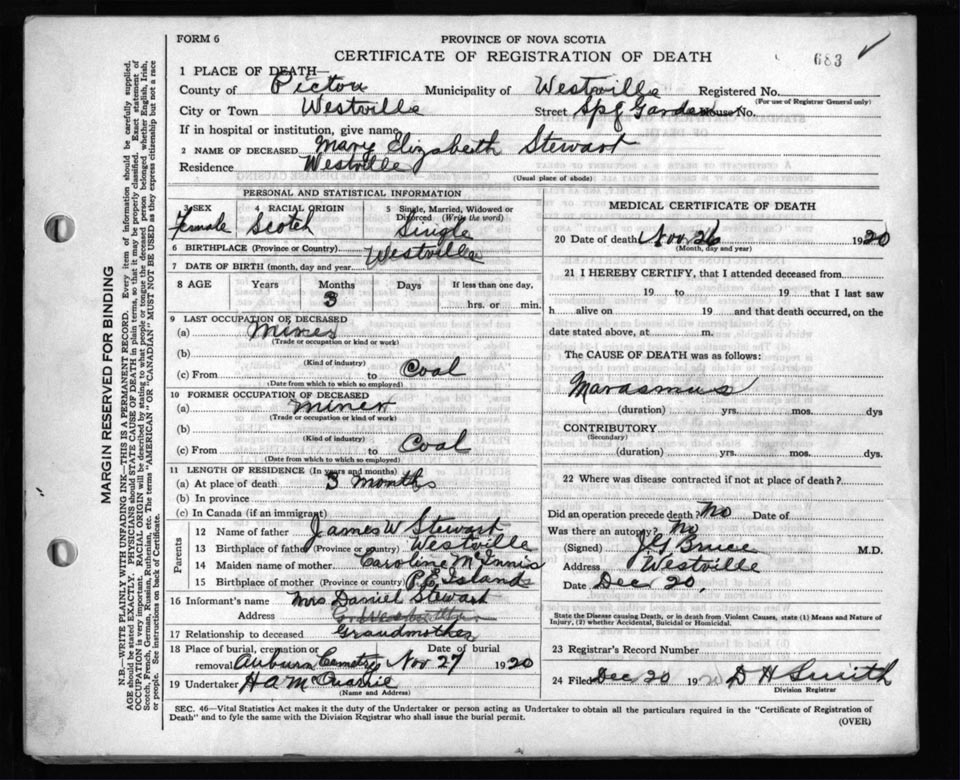 FORM 6
PROVINCE OF NOVA SCOTIA
CERTIFICATE OF REGISTRATION OF DEATH
683
1 PLACE OF DEATH—
County of Pictou Municipality of Westville Registered No.
(For use of Registrar General only)
City or Town Westville Street Spg Garden House No.
If in hospital or institution, give name
2 NAME OF DECEASED Mary Elizabeth Stewart
Residence Westville
(Usual place of abode)
PERSONAL AND STATISTICAL INFORMATION
3 SEX Female
4 RACIAL ORIGIN Scotch
5 Single, Married, Widowed or Divorced (Write the word) Single
6 BIRTHPLACE (Province or Country) Westville
7 DATE OF BIRTH (month, day and year)
8 AGE Years Months 3 Days If less than one day, hrs. or min.
9 LAST OCCUPATION OF DECEASED
(a) Miner
(Trade or occupation or kind of work)
(b)
(Kind of industry)
(c) From to Coal
(Date from which to which so employed)
10 FORMER OCCUPATION OF DECEASED
(a) miner
(Trade or occupation or kind of work)
(b)
(Kind of industry)
(c) From to Coal
(Date from which to which so employed)
11 LENGTH OF RESIDENCE (In years and months)
(a) At place of death 3 months
(b) In province
(c) In Canada (if an immigrant)
Parents
12 Name of father James W Stewart
13 Birthplace of father (Province or country) Westville
14 Maiden name of mother Caroline McInnis
15 Birthplace of mother (Province or country) P.E. Islands
16 Informant's name Mrs Daniel Stewart
Address
17 Relationship to deceased Grandmother
18 Place of burial, cremation or removal Auburn Cemetry Date of burial Nov 27 1920
19 Undertaker H A McQuarrie
(Name and Address)
MEDICAL CERTIFICATE OF DEATH
20 Date of death Nov 26 1920
(Month, day and year)
21 I HEREBY CERTIFY, that I attended deceased from
19 to 19 that I last saw
h alive on 19 and that death occurred, on
date stated above, at m.
The CAUSE OF DEATH was as follows:
Marasmus
(duration) yrs. mos. dys
CONTRIBUTORY
(Secondary)
(duration) yrs. mos. dys.
22 Where was disease contracted if not at place of death?
Did an operation precede death? No Date of
Was there an autopsy? No
(Signed) J G Bruce M.D.
Address Westville
Date Dec 20,
State the Disease causing Death, or in death from Violent Causes, state (1) Means and Nature of
Injury, (2) whether Accidental, Suicidal or Homicidal.
23 Registrar's Record Number
24 Filed Dec 20 1920 D H Smith
Division Registrar
SEC. 46—Vital Statistics Act makes it the duty of the Undertaker or person acting as Undertaker to obtain all the particulars required in the "Certificate of Registration of
Death" and to fyle the same with the Division Registrar who shall issue the burial permit.
(OVER)
MARGIN RESERVED FOR BINDING
N.B.—WRITE PLAINLY WITH UNFADING INK—THIS IS A PERMANENT RECORD. Every item of information should be carefully supplied.
AGE should be stated EXACTLY. PHYSICIANS should STATE CAUSE OF DEATH in plain terms, so that it may be properly classified. Exact statement of
OCCUPATION is very important. RACIAL ORIGIN will be described by stating to what people or tongue the deceased person belonged whether English, Irish,
Scotch, French, German, Russian, Ruthenian, etc. The terms "AMERICAN" OR "CANADIAN" MUST NOT BE USED as they express citizenship but not a race
See instructions on back of Certificate.